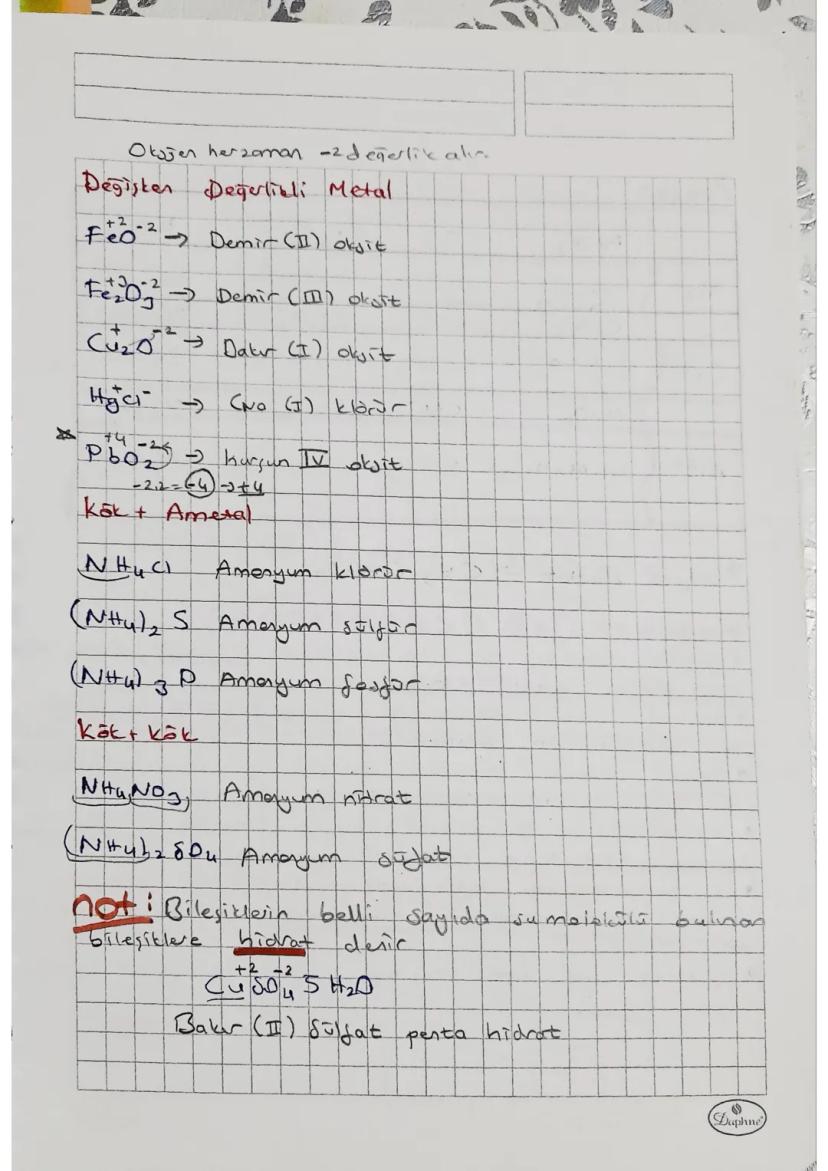 Oksijen her zaman -2 değerlik alır.
Değişken Değerlikli Metal
Fe⁺²O⁻² → Demir (II) oksit
Fe₂⁺³O₃⁻² → Demir (III) oksit
Cu₂⁺O⁻² → Bakır (I) oksit
Hg⁺Cl⁻ → Cıva (I) klorür
Pb⁺⁴O₂⁻² → kurşun IV oksit
-2.2 = -4 → +4
Kök + Ametal
NH₄Cl Amonyum klorür
(NH₄)₂ S Amonyum sülfür
(NH₄)₃ P Amonyum fosfür
Kök + Kök
NH₄NO₃ Amonyum nitrat
(NH₄)₂ SO₄ Amonyum sülfat
not: Bileşiklerin belli sayıda su molekülü bulunan
bileşiklere hidrat denir
Cu⁺²SO₄⁻² 5 H₂O
Bakır (II) Sülfat penta hidrat
Daphne